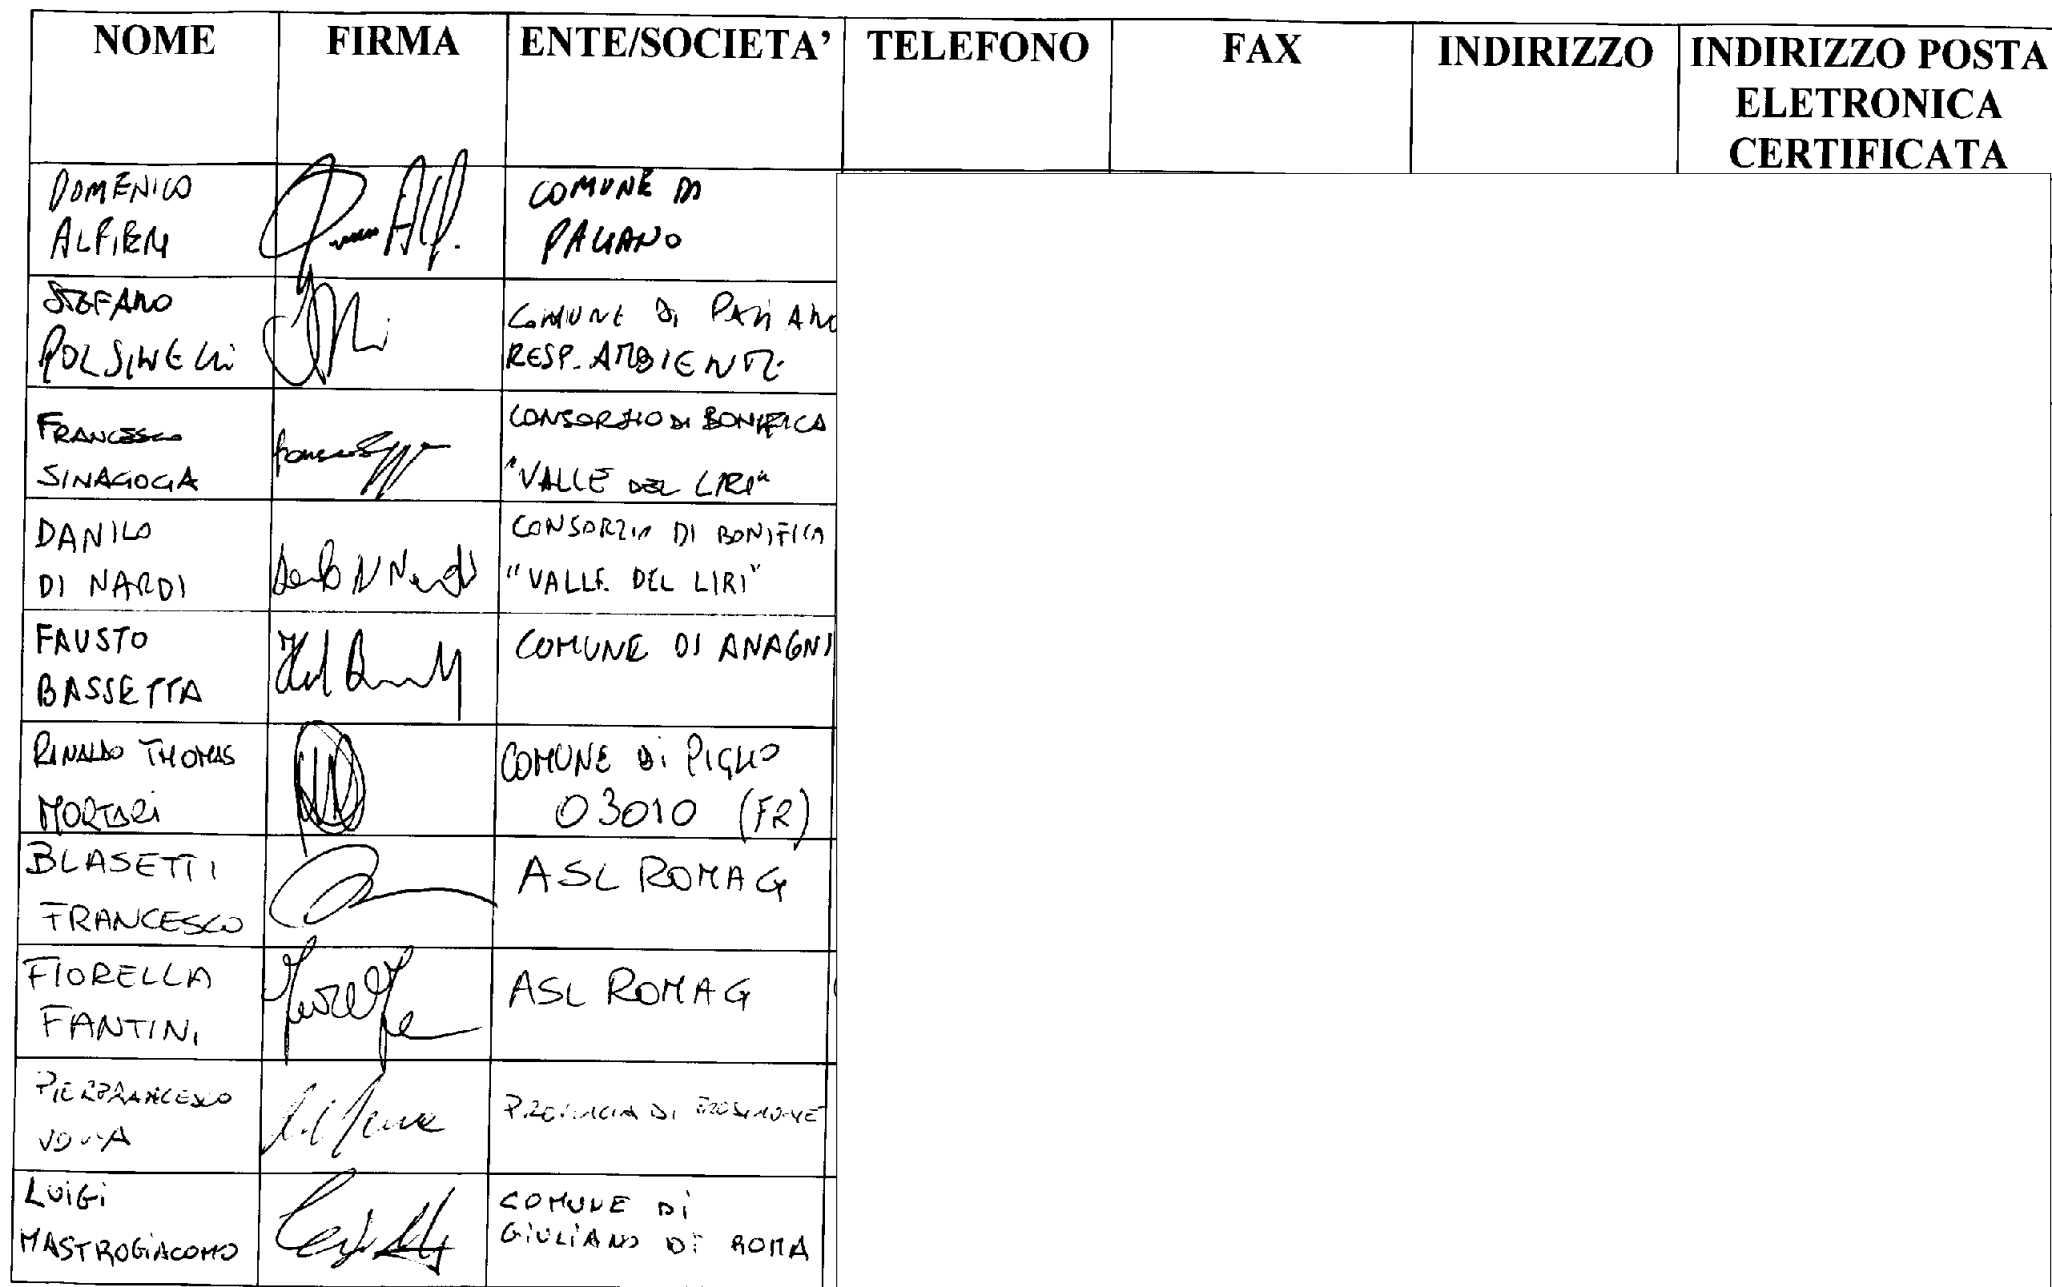 NOME FIRMA ENTE/SOCIETA' TELEFONO FAX INDIRIZZO INDIRIZZO POSTA
ELETRONICA
CERTIFICATA
DOMENICO
ALFIERI
COMUNE DI
PALIANO
STEFANO
POLSINELLI
COMUNE DI PALIANO
RESP. AMBIENTE
FRANCESCO
SINAGOGA
CONSORZIO DI BONIFICA
"VALLE DEL LIRI"
DANILO
DI NARDI
CONSORZIO DI BONIFICA
"VALLE DEL LIRI"
FAUSTO
BASSETTA
COMUNE DI ANAGNI
RINALDO THOMAS
MORTARI
COMUNE Di PIGLIO
03010 (FR)
BLASETTI
FRANCESCO
ASL ROMA G
FIORELLA
FANTINI
ASL ROMA G
PIERFRANCESCO
PROVINCIA DI FROSINONE
LUiGi
MASTROGiACOMO
COMUNE Di
GiULiANO Di ROMA